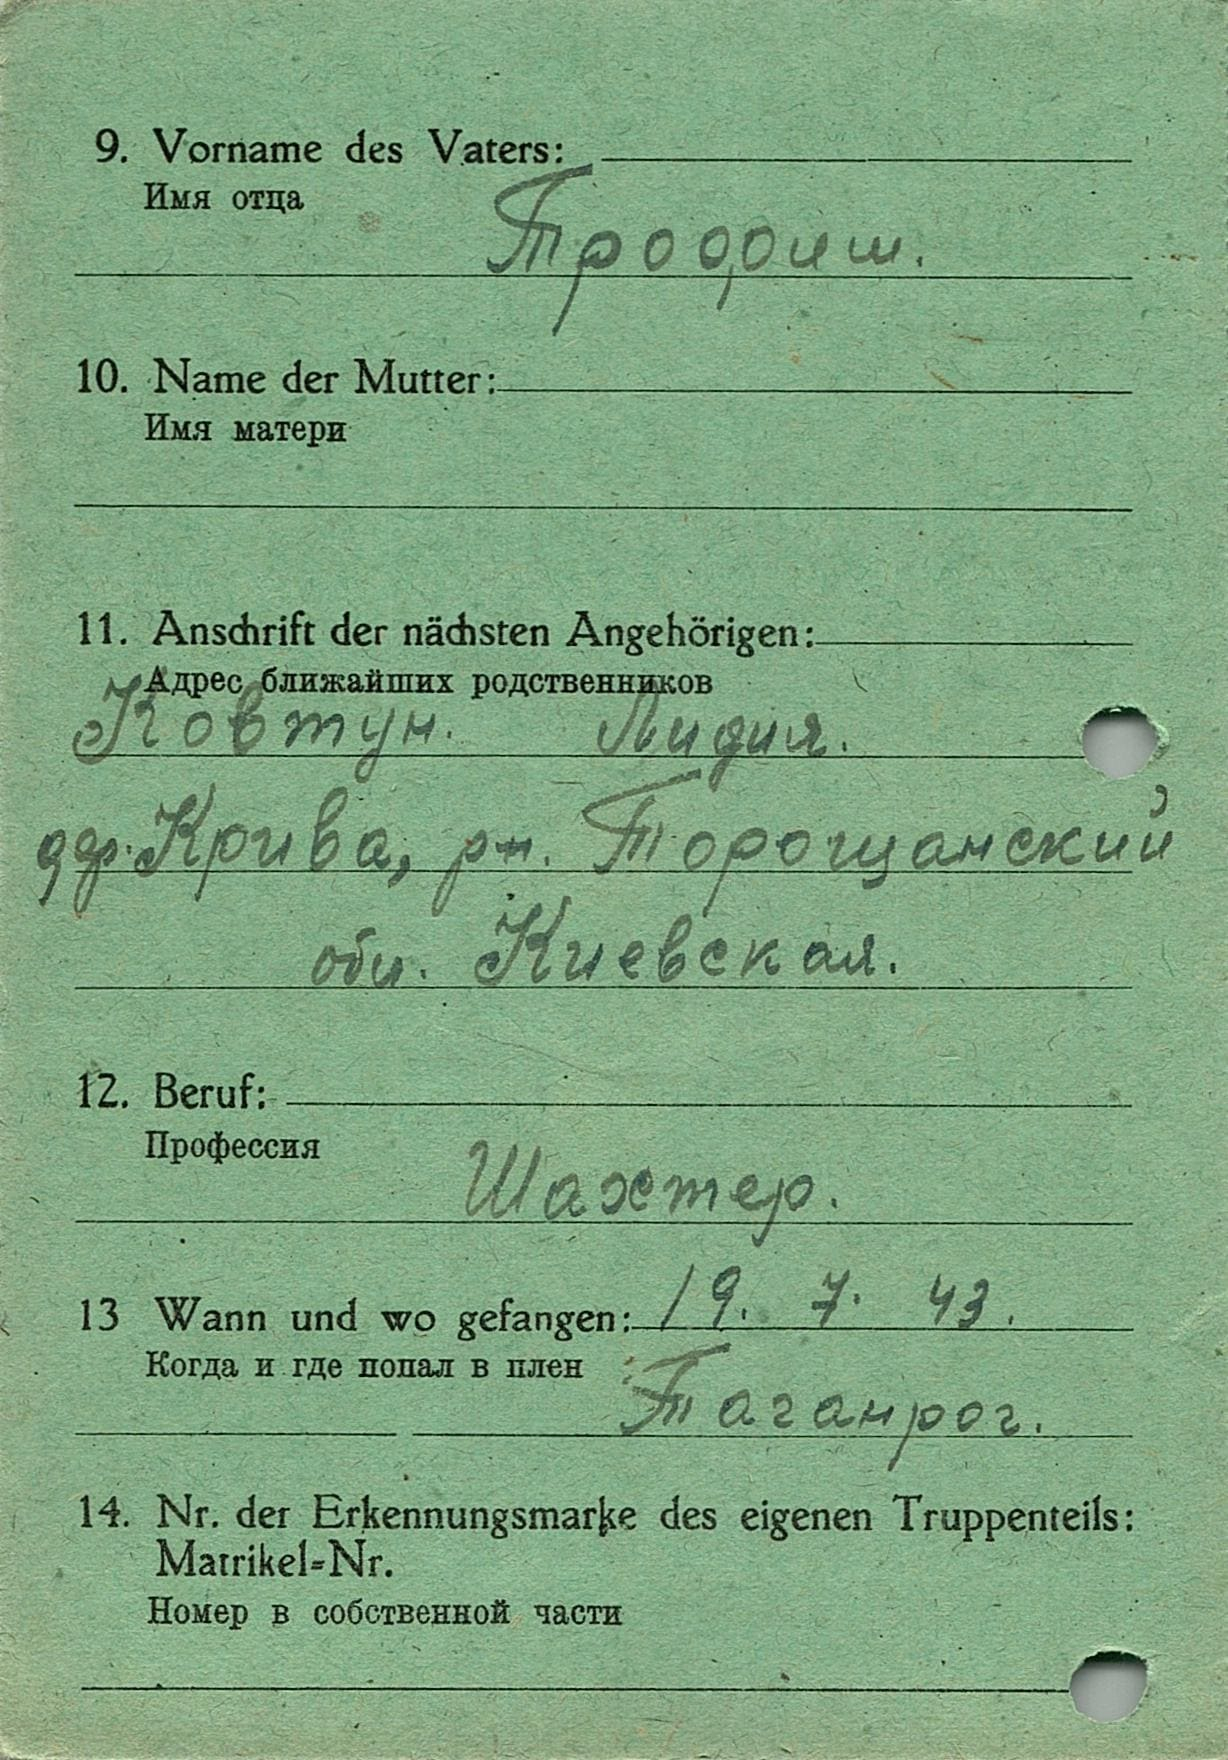 9. Vorname des Vaters:
Имя отца
Трофиш.
10. Name der Mutter:
Имя матери
11. Anschrift der nächsten Angehörigen:
Адрес ближайших родственников
Ковтун. Лидия.
дер. Крива, рн. Торощанский
обл. Киевская.
12. Beruf:
Профессия
Шахтер.
13 Wann und wo gefangen: 19. 7. 43.
Когда и где попал в плен
Таганрог.
14. Nr. der Erkennungsmarke des eigenen Truppenteils:
Matrikel-Nr.
Номер в собственной части